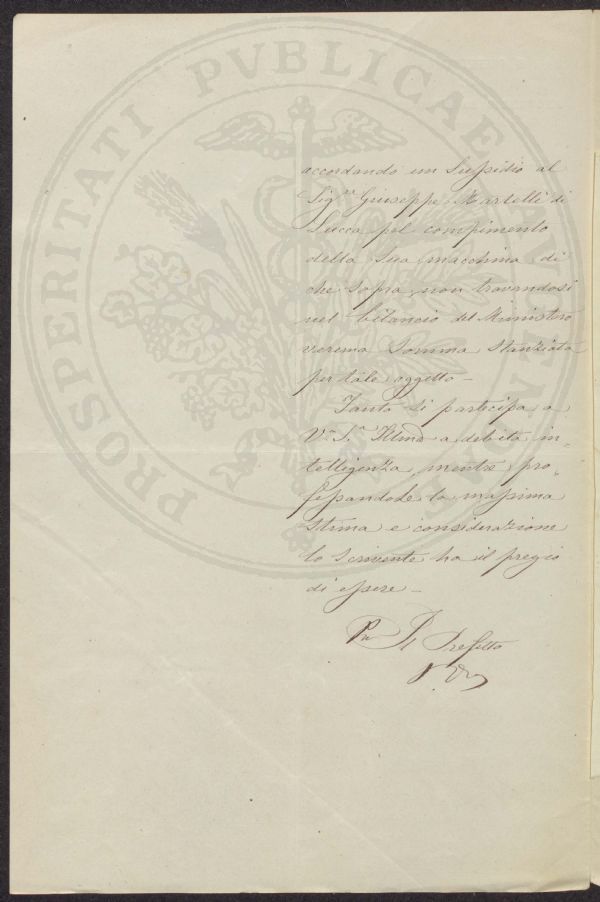 PROSPERITATI PVBLICAE AVGENDAE
accordando un Sussidio al
Sig.re Giuseppe Martelli di
Lucca pel compimento
della sua macchina di
che sopra, non trovandosi
nel bilancio del Ministero
veruna Somma Stanziata
per tale oggetto –
Tanto si partecipa a
V.a S.a Illma a debita in-
telligenza, mentre pro-
fessandole la massima
Stima e considerazione
lo scrivente ha il pregio
di essere –
Il Prefetto